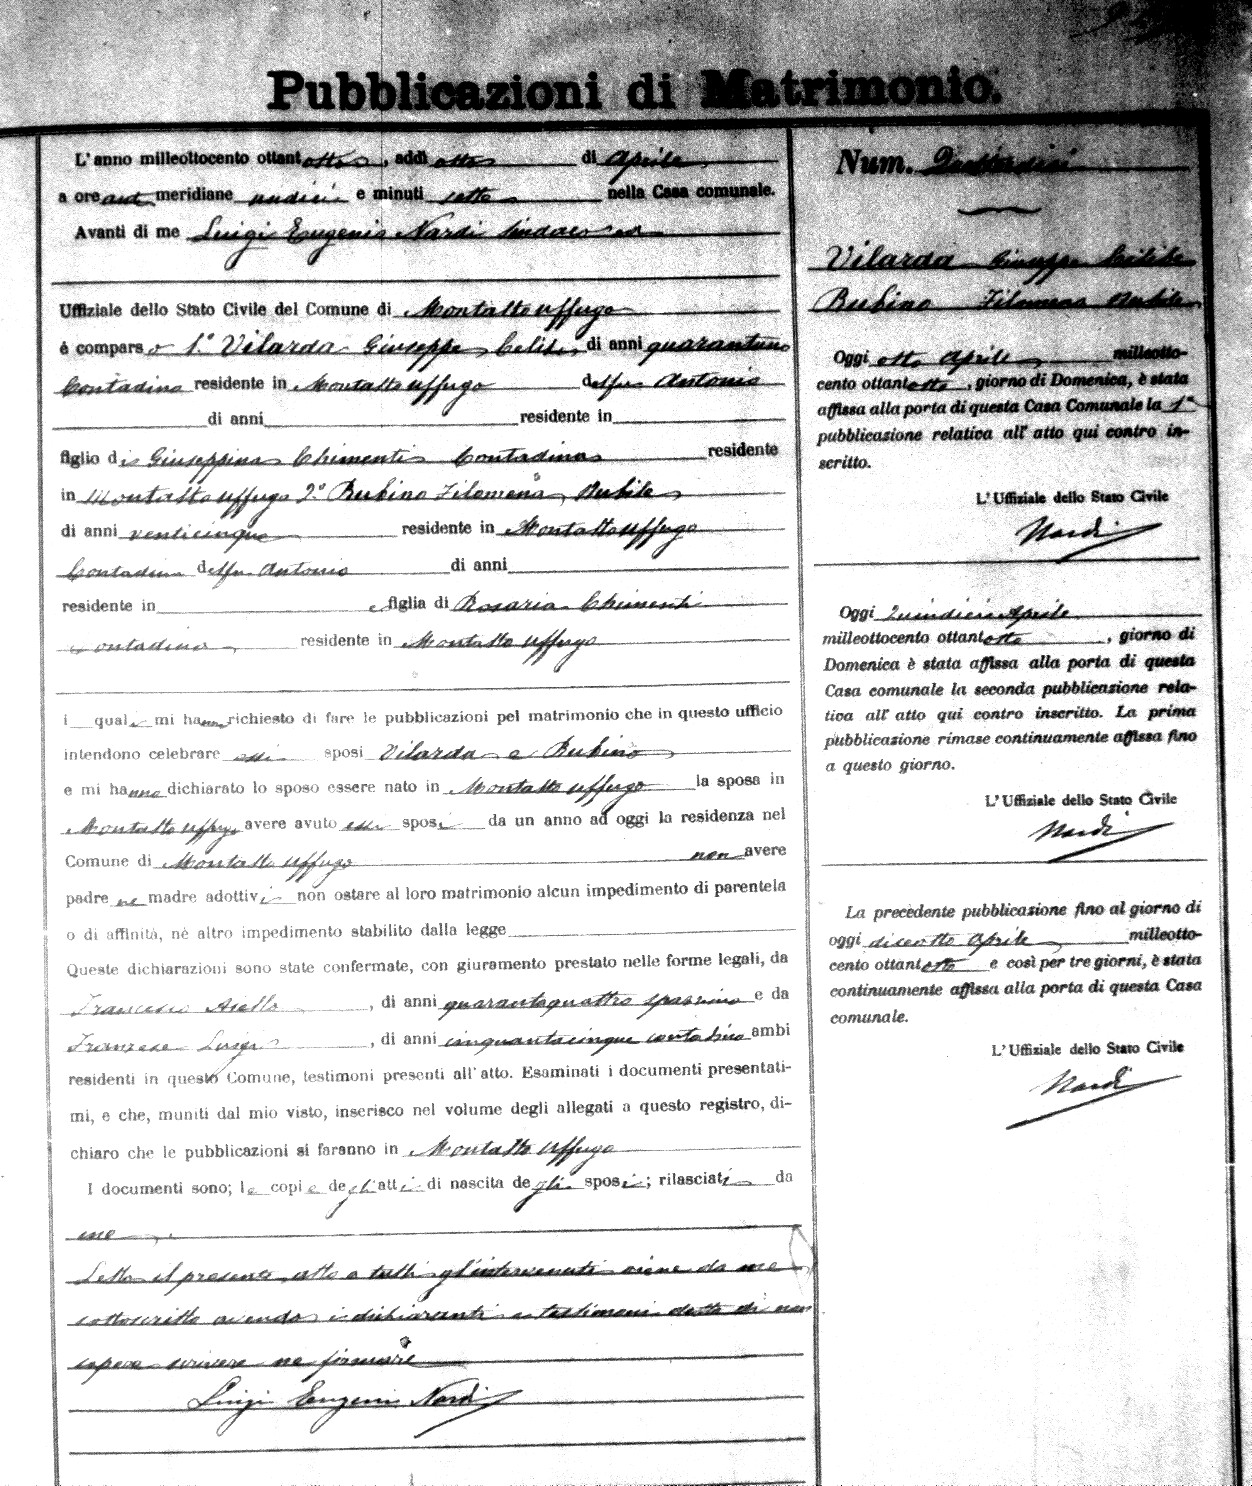 Pubblicazioni di Matrimonio.
L'anno milleottocento ottantotto, addì otto di Aprile
a ore ant meridiane undici e minuti sette nella Casa comunale.
Avanti di me Luigi Eugenio Nardi Sindaco ed
Uffiziale dello Stato Civile del Comune di Montalto Uffugo
é comparso 1.° Vilarda Giuseppe Celibe di anni quarantuno
Contadino residente in Montalto Uffugo del fu Antonio
di anni residente in
figlio di Giuseppina Chimenti Contadina residente
in Montalto Uffugo 2.° Rubino Filomena Nubile
di anni venticinque residente in Montalto Uffugo
Contadina del fu Antonio di anni
residente in e figlia di Rosaria Chimenti
Contadina residente in Montalto Uffugo
i quali mi hanno richiesto di fare le pubblicazioni pel matrimonio che in questo ufficio
intendono celebrare essi sposi Vilarda e Rubino
e mi hanno dichiarato lo sposo essere nato in Montalto Uffugo la sposa in
Montalto Uffugo avere avuto essi sposi da un anno ad oggi la residenza nel
Comune di Montalto Uffugo non avere
padre ne madre adottivi non ostare al loro matrimonio alcun impedimento di parentela
o di affinità, nè altro impedimento stabilito dalla legge
Queste dichiarazioni sono state confermate, con giuramento prestato nelle forme legali, da
Francesco Aiello, di anni quarantaquattro spazzino e da
Franzese Luigi, di anni cinquantacinque contadino ambi
residenti in questo Comune, testimoni presenti all'atto. Esaminati i documenti presentati-
mi, e che, muniti dal mio visto, inserisco nel volume degli allegati a questo registro, di-
chiaro che le pubblicazioni si faranno in Montalto Uffugo
I documenti sono; le copie degli atti di nascita degli sposi; rilasciati da
me
Letto il presente atto a tutti gl'intervenuti viene da me
sottoscritto avendo i dichiaranti e testimoni detto di non
sapere scrivere ne firmare
Luigi Eugenio Nardi
Num. Quattordici
Vilarda Giuseppe Celibe
Rubino Filomena Nubile
Oggi otto Aprile milleotto-
cento ottantotto, giorno di Domenica, è stata
affissa alla porta di questa Casa Comunale la 1a
pubblicazione relativa all'atto qui contro in-
scritto.
L'Uffiziale dello Stato Civile
Nardi
Oggi Quindici Aprile
milleottocento ottantotto, giorno di
Domenica è stata affissa alla porta di questa
Casa comunale la seconda pubblicazione rela-
tiva all'atto qui contro inscritto. La prima
pubblicazione rimase continuamente affissa fino
a questo giorno.
L'Uffiziale dello Stato Civile
Nardi
La precedente pubblicazione fino al giorno di
oggi dieciotto Aprile milleotto-
cento ottantotto e così per tre giorni, è stata
continuamente affissa alla porta di questa Casa
comunale.
L'Uffiziale dello Stato Civile
Nardi